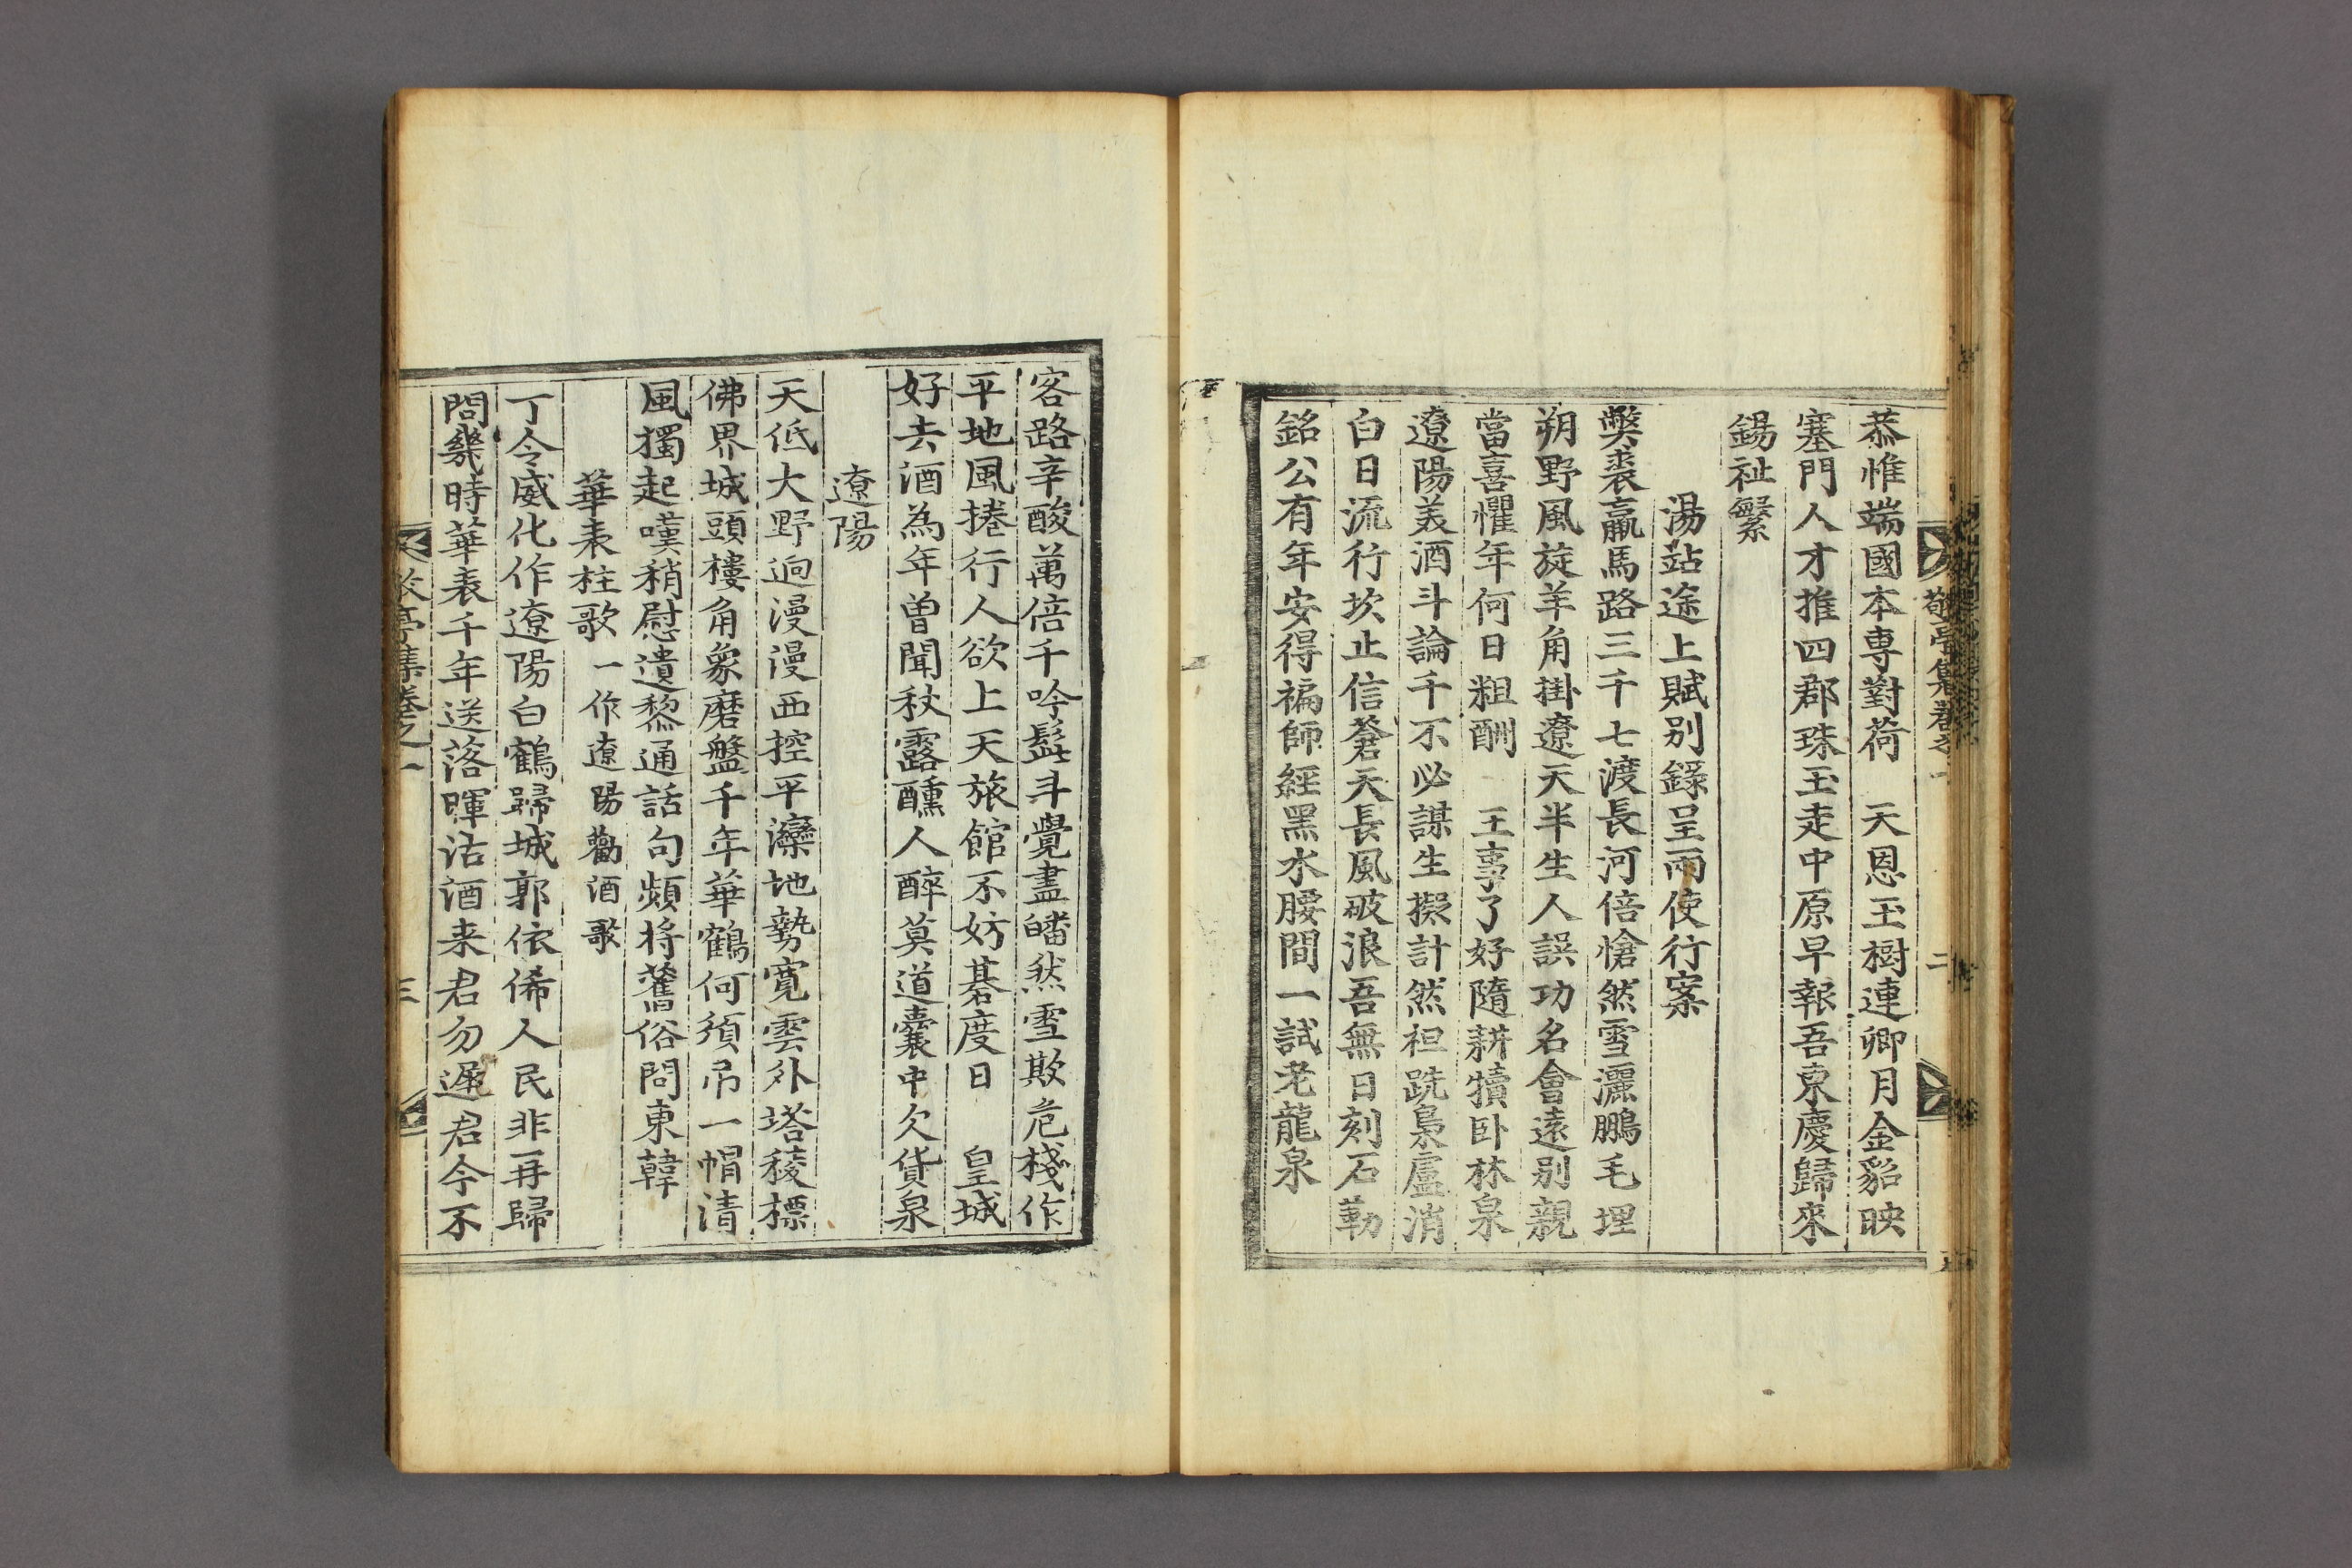 敬亭集卷之一 二
恭惟端國本専對荷 天恩玉樹連卿月金貂映
塞門人才推四郡珠玉走中原早報吾東慶歸來
錫祉繁
湯站途上賦別錄呈兩使行案
弊裘羸馬路三千七渡長河倍愴然雪灑鵬毛埋
朔野風旋羊角掛遼天半生人誤功名會遠別親
當喜懼年何日粗酬 王事了好隨耕犢卧林泉
遼陽美酒斗論千不必謀生擬計然袒跣梟盧消
白日流行坎止信蒼天長風破浪吾無日刻石勒
銘公有年安得褊師經黑水腰間一試老龍泉
客路辛酸萬倍千吟髭斗覺盡皤然雪欺危棧作
平地風捲行人欲上天旅館不妨碁度日 皇城
好去酒為年曽聞秋露醺人醉莫道囊中欠貨泉
遼陽
天低大野逈漫漫西控平灤地勢寛雲外塔稜標
佛界城頭樓角象磨盤千年華鶴何須吊一帽清
風獨起嘆稍慰遺黎通話句頻將舊俗問東韓
華表柱歌 一作遼陽勸酒歌
丁令威化作遼陽白鶴歸城郭依俙人民非再歸
問幾時華表千年送落暉沽酒来君勿遲君今不
敬亭集卷之一 三